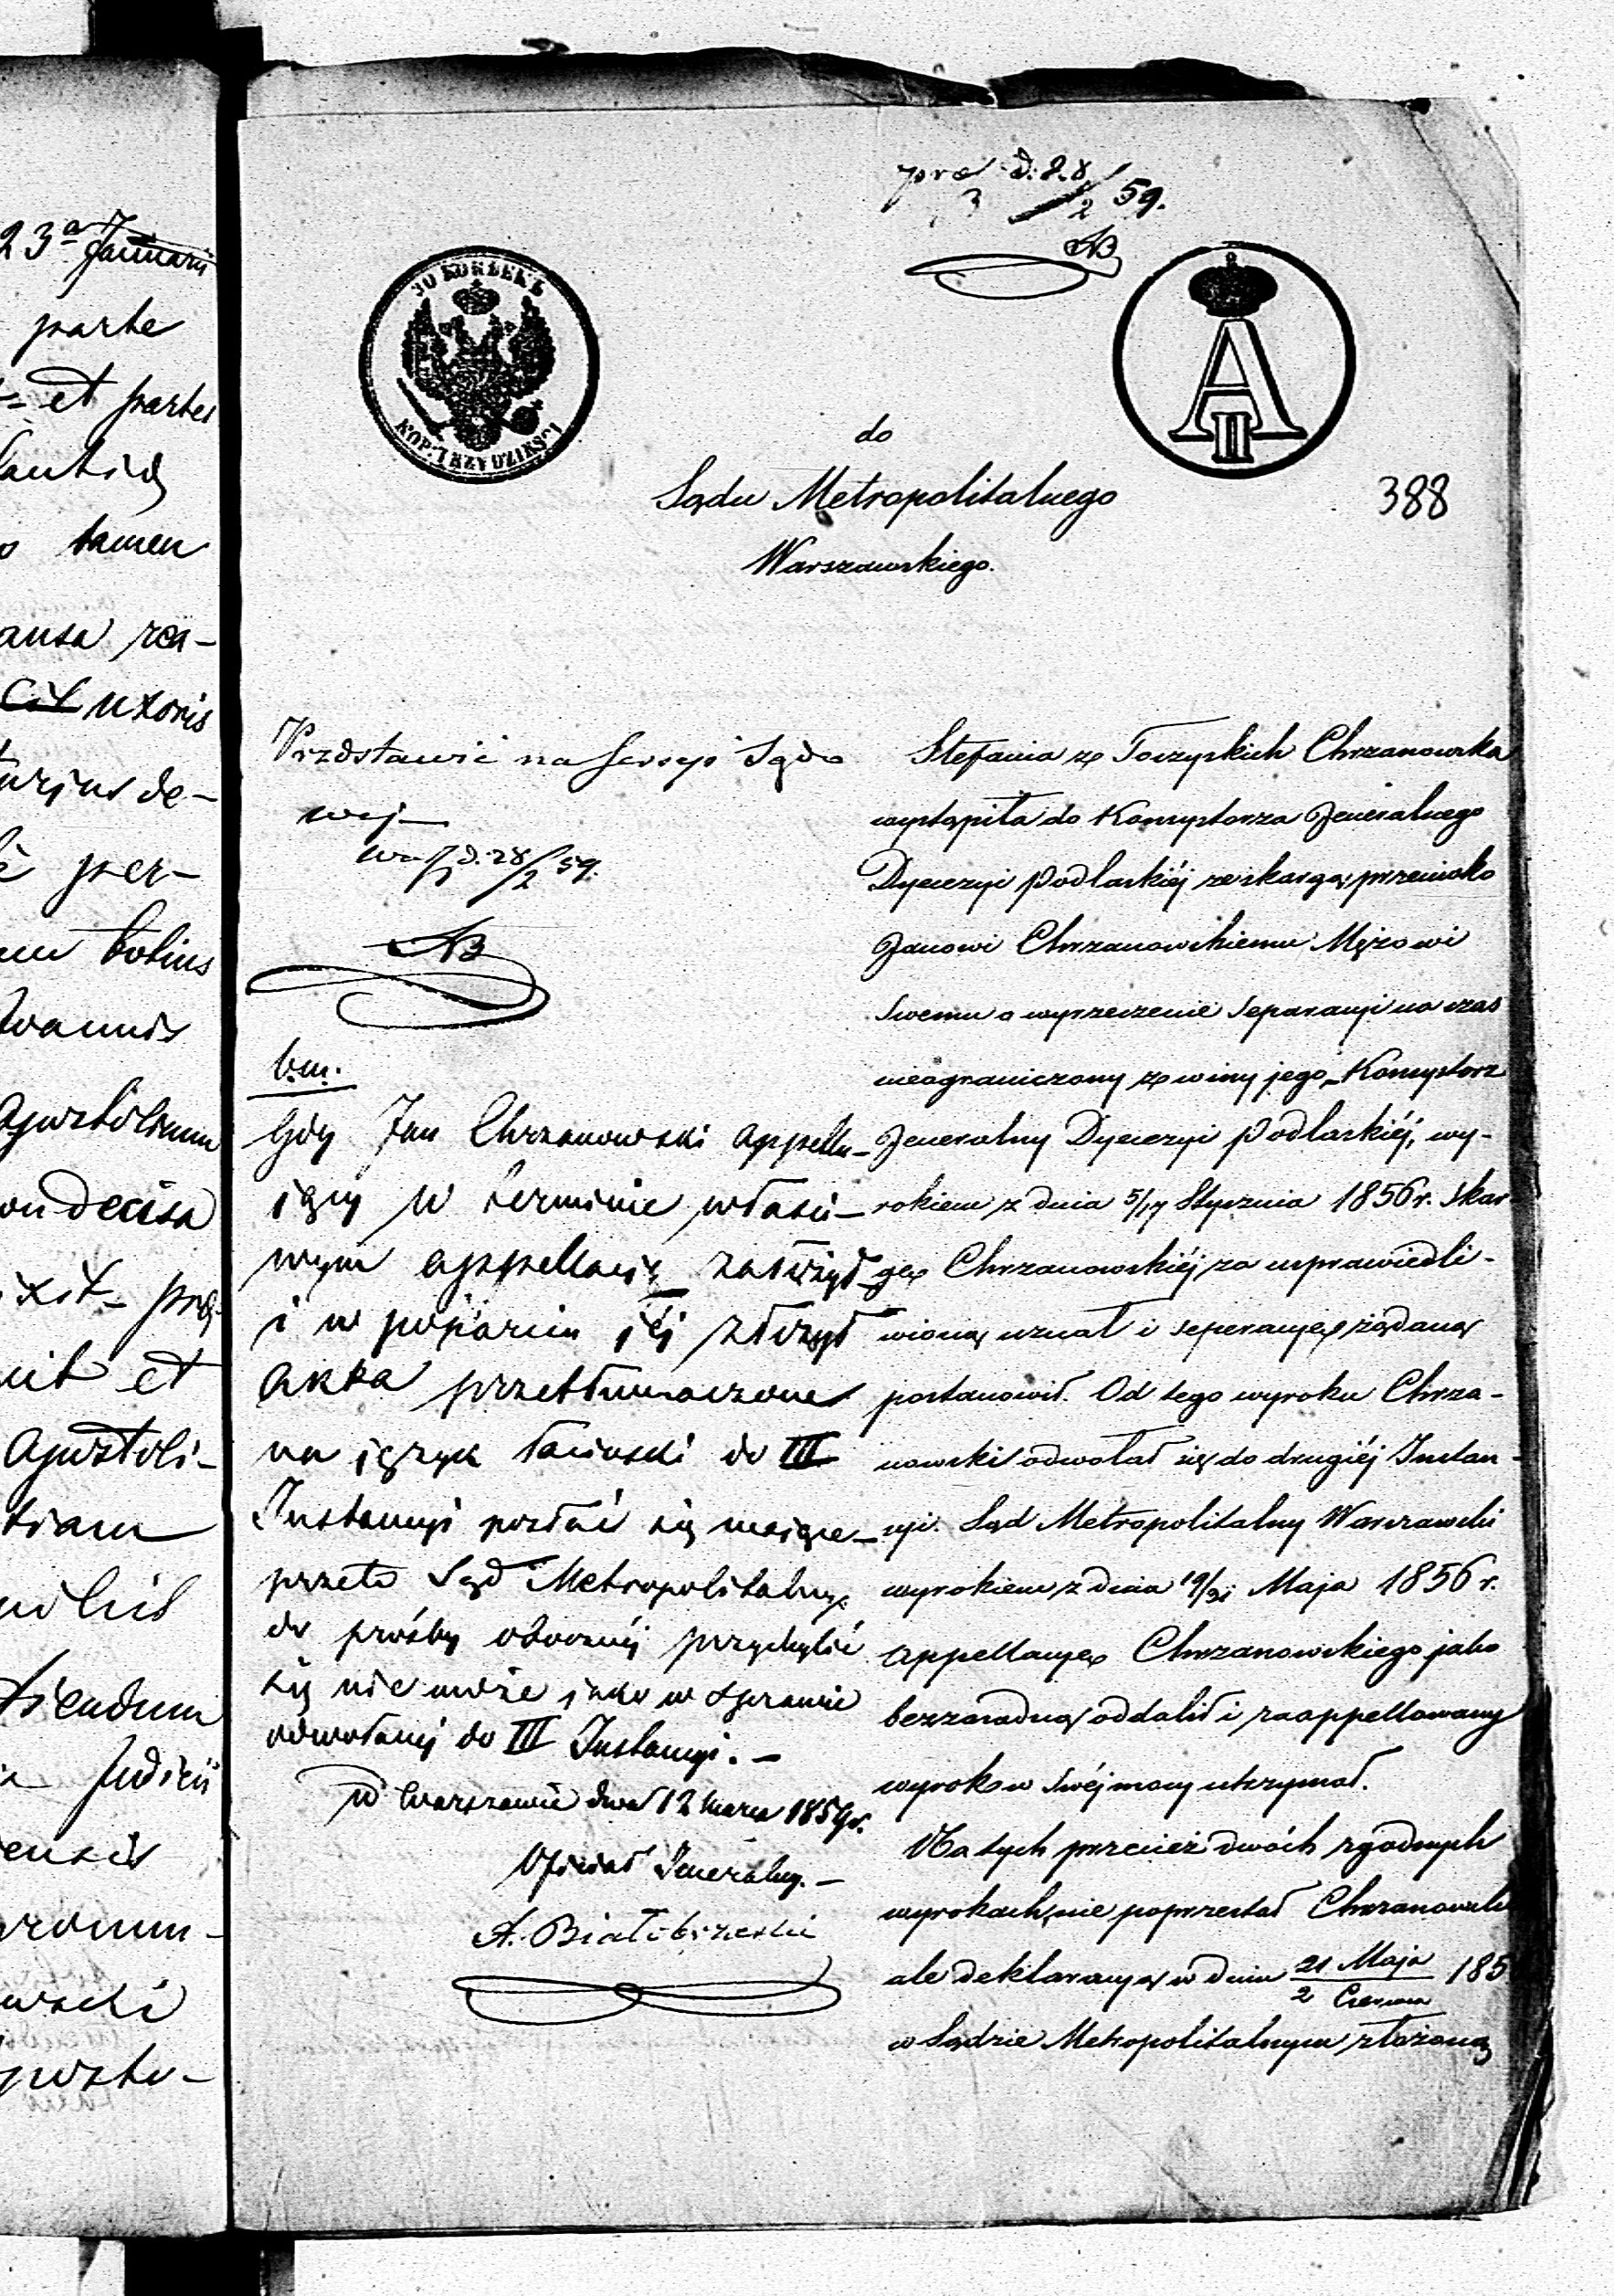 23ª Januarii
parte
et partes
tamen
ausa rea-
uxoris
de-
per-
totius
Joannis
decisa
et
Apostoli-
tiam
Judicii
præ d: 28/2 59.
3
AB
30 KOPEEKЪ
KOP: TRZYDZIEŚCI
A II
do
Sądu Metropolitalnego
388
Warszawskiego.
Przdstawić na Sessyi Sądo
wej
d. 28/2 59.
AB
b.m.
Gdy Jan Chrzanowski appellu-
jący w terminie właści-
wym appellacyę założył
i w poparciu jéj złożył
akta przetłumaczone
na język łaciński do III
Instancyi posłać się mające-
przeto Sąd Metropolitalny
do prośby obocznéj przychylić
się nie może jako w sprawie
odwołanéj do III Instancyi. -
w Warszawie dnia 12 Marca 1859r.
Officiał Jeneralny. -
A. Białobrzeski
Stefania z Toczyskich Chrzanowska
wystąpiła do Konsystorza Jeneralnego
Dyecezyi Podlaskiéj ze skargą przeciwko
Janowi Chrzanowskiemu Mężowi
swemu o wyrzeczenie separacyi na czas
nieograniczony z winy jego - Konsystorz
Jeneralny Dyecezyi Podlaskiéj, wy-
rokiem z dnia 5/17 Stycznia 1856 r. skar
gę Chrzanowskiéj za usprawiedli-
wioną uznał i seperacyę żądaną
postanowił. Od tego wyroku Chrza-
nowski odwołał się do drugiéj Instan-
cyi. Sąd Metropolitalny Warszawski
wyrokiem z dnia 19/31 Maja 1856 r.
appellacyę Chrzanowskiego jako
bezzasadną oddalił i zaappellowany
wyrok w swéj mocy utrzymał.
Na tych przecież dwóch zgodnych
wyrokach nie poprzestał Chrzanowski
ale deklaracyą w dniu 21 Maja / 2 Czerwca 185
w Sądzie Metropolitalnym złożoną